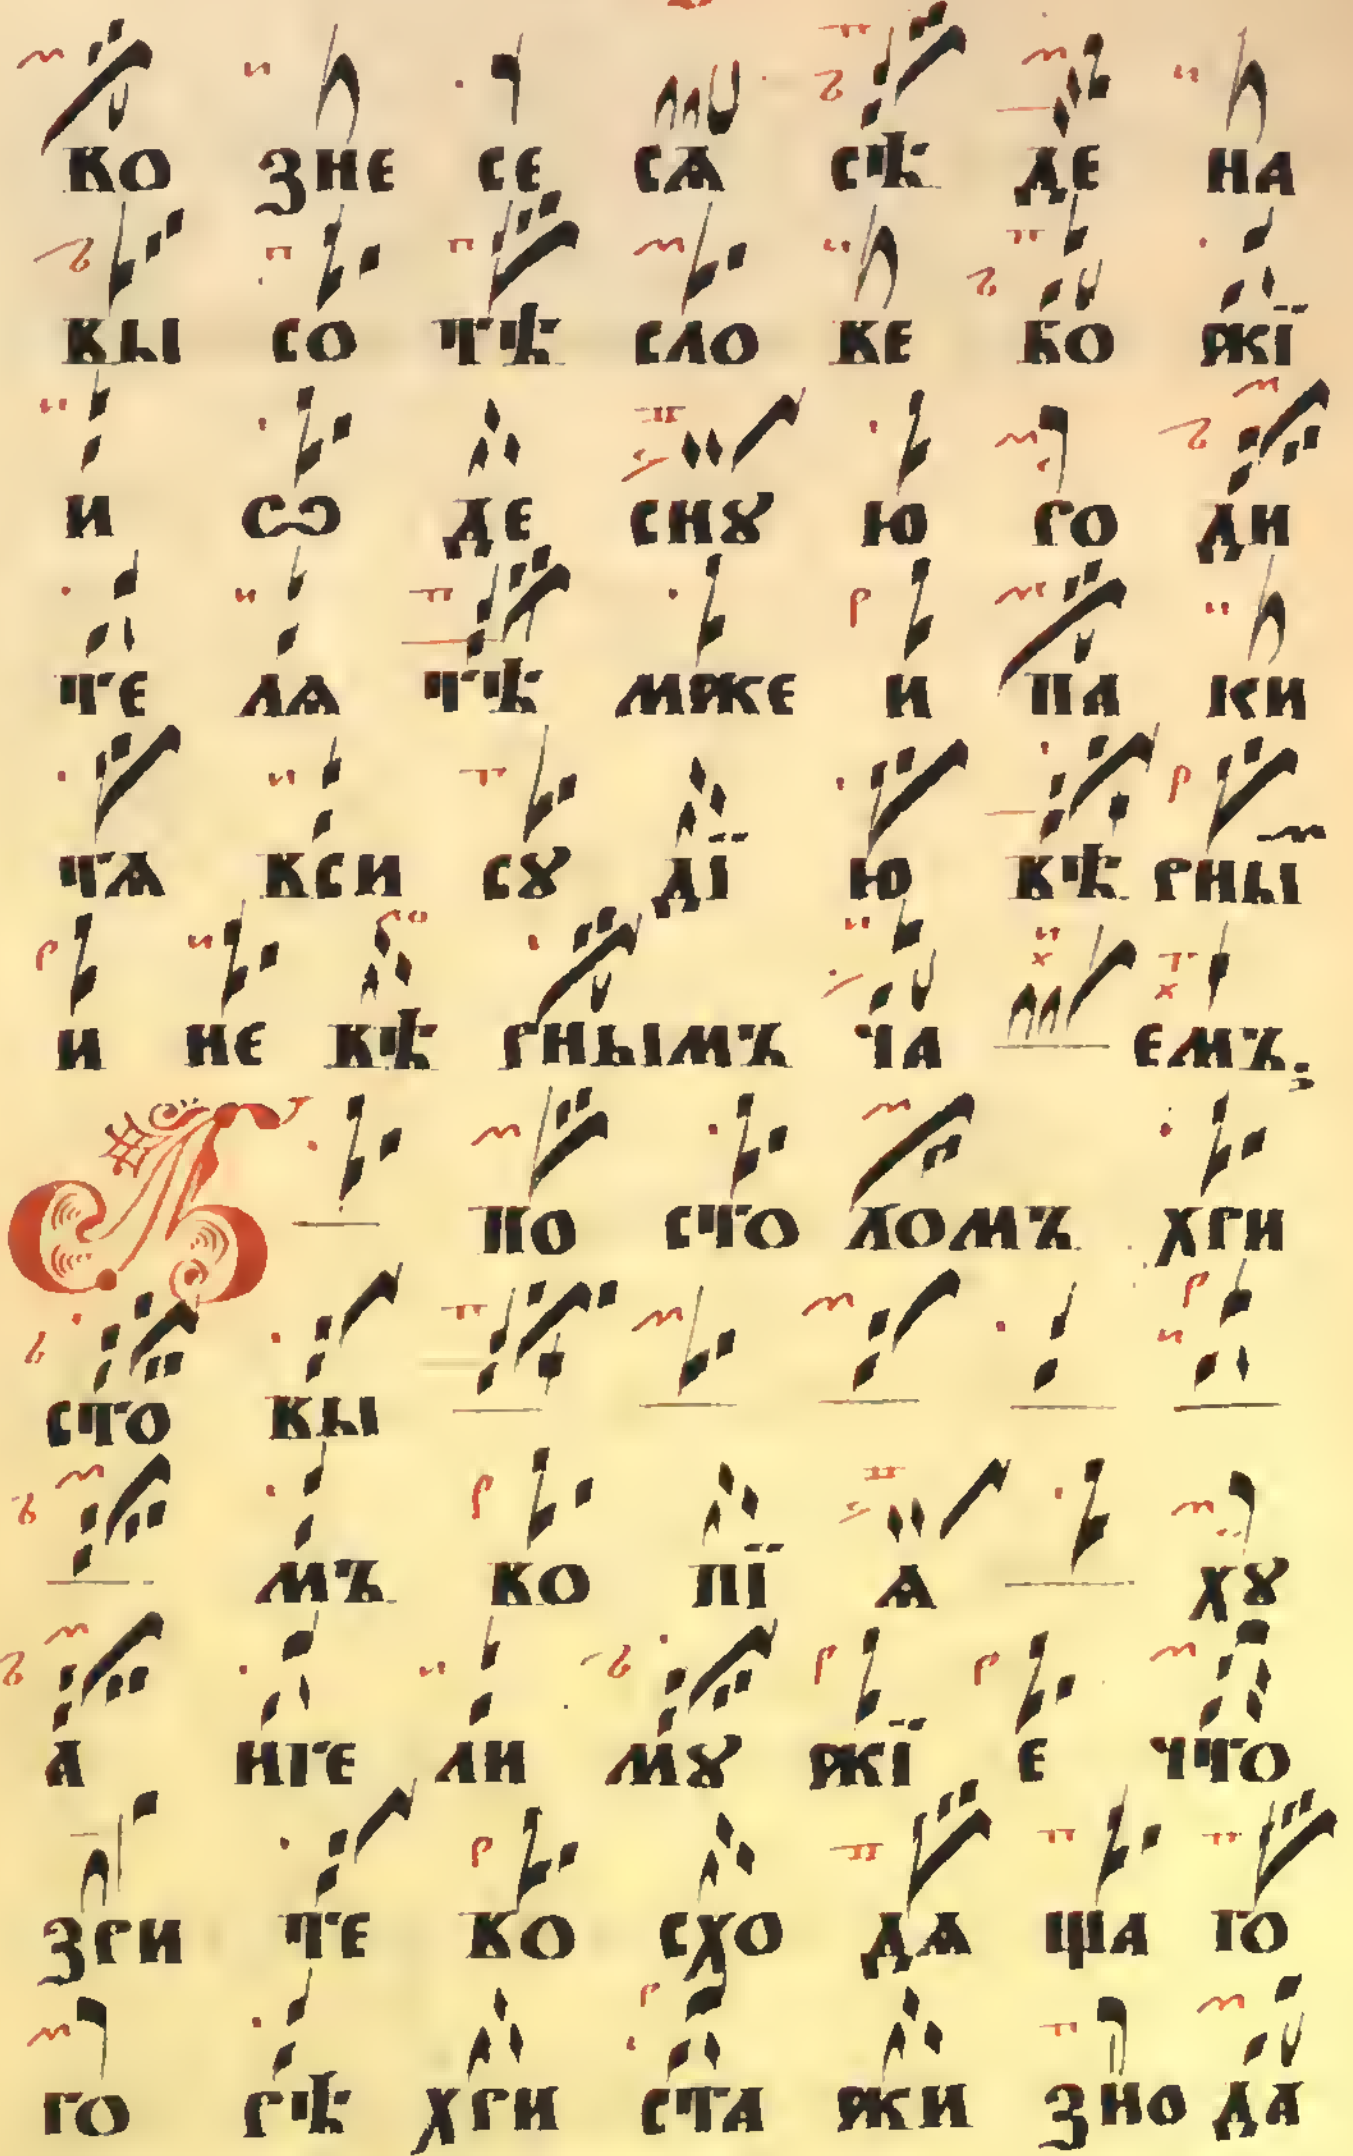 ко зне се сѧ сѣ де на
вы со тѣ сло ве бо жї
и ѡ де снꙋ ю ро ди
те лѧ тѣ мже и па ки
тѧ вси сꙋ дї ю вѣ рны̃ї
и не вѣ рнымъ ча емъ;
А по сто ломъ хри
сто вы
мъ во пї ѧ хꙋ
а нге ли мꙋ жї е что
зри те во схо дѧ ща го
го рѣ хри ста жи зно да